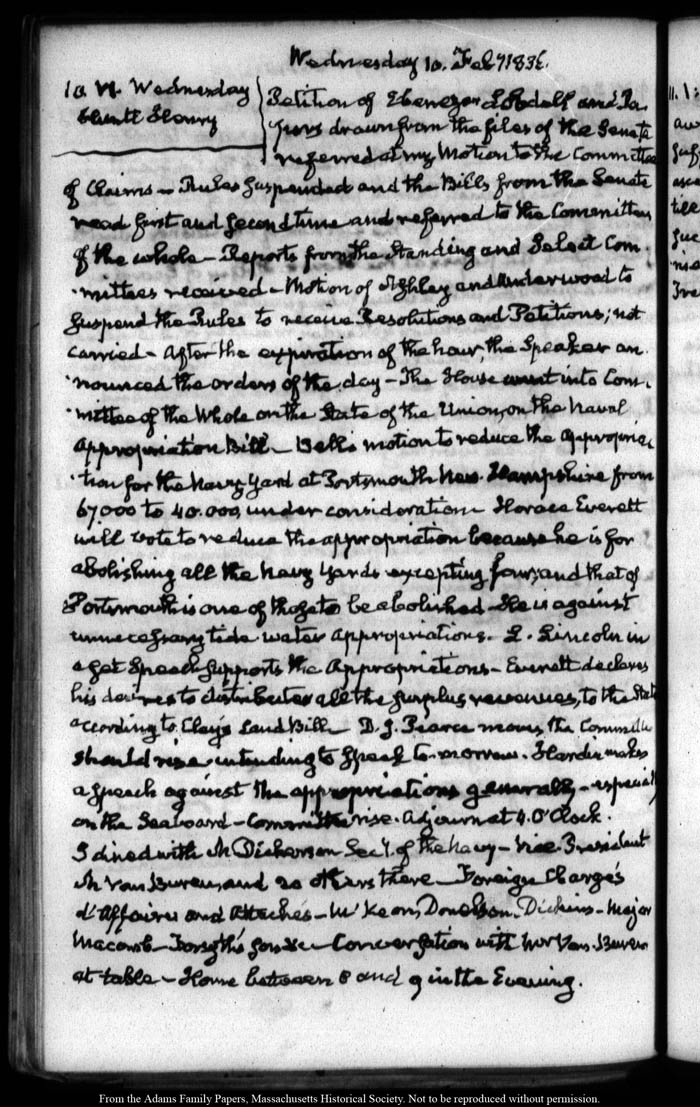 Wednesday 10. Feby 1836.
10. VI. Wednesday
Huntt Henry
Petition of Ebenezer Lobdell and Pa-
pers drawn from the files of the Senate
referred at my Motion to the Committee
of Claims – Rules suspended and the Bills from the Senate
read first and second time and referred to the Committee
of the whole – Reports from the Standing and Select Com-
mittees received – Motion of Ashley and Underwood to
suspend the Rules to receive Resolutions and Petitions; not
carried – After the expiration of the hour, the Speaker an-
nounced the orders of the day – The House went into Com-
mittee of the Whole on the State of the Union, on the Naval
Appropriation Bill – Bell's motion to reduce the appropria-
tion for the Navy Yard at Portsmouth New Hampshire from
67000 to 40.000, under consideration – Horace Everett
will vote to reduce the appropriation because he is for
abolishing all the Navy Yards excepting four; and that of
Portsmouth is one of those to be abolished – He is against
unnecessary tide water appropriations. L. Lincoln in
a set Speech supports the Appropriations – Everett declares
his desires to distribute all the surplus revenues, to the State
according to Clay's Land Bill – D. J. Pearce moves, the Committee
should rise intending to speak to-morrow. Hardin makes
a speech against the appropriations generally – especially
on the Seaboard – Committee rise. Adjourn at 4. O'Clock.
I dined with Mr Dickerson Secy. of the Navy – Vice-President
Mr Van Buren, and 20 others there – Foreign Chargés
d'Affaires and Attachés – McKeon, Donelson, Dickins – Major
Macomb – Forsyth's son &c – Conversation with Mr Van Buren
at table – Home between 8 and 9 in the Evening.
11. I:
From the Adams Family Papers, Massachusetts Historical Society. Not to be reproduced without permission.